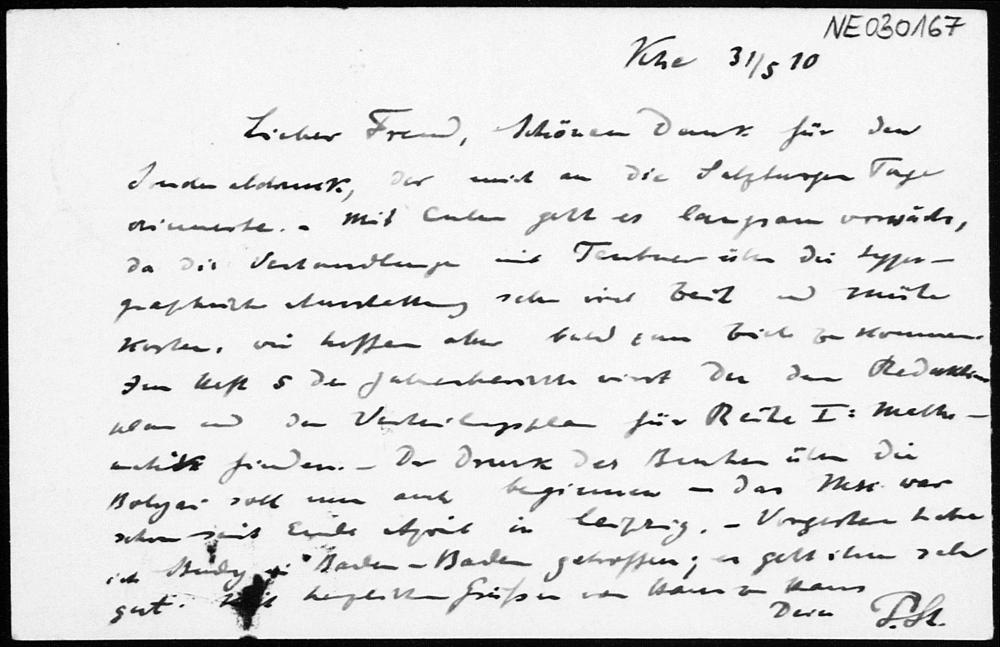 NE030167
Khe 31/5 10
Lieber Freund, Schönen Dank für den
Sonderabdruck, der mich an die Salzburger Tage
erinnerte. - Mit Euler geht es langsam vorwärts,
da die Verhandlungen mit Teubner über die typo-
graphische Ausstattung sehr viel Zeit und Mühe
kosten, wir hoffen aber bald zum Ziele zu kommen.
Im Heft 5 der Jahresberichte wirst Du den Redaktions
plan und den Verteilungsplan für Reihe I: Mathe-
matik finden. - Der Druck des Buches über die
Bolyai soll nun auch beginnen - das Msk. war
schon seit Ende April in Leipzig. - Vorgestern habe
ich Study in Baden-Baden getroffen; es geht ihm sehr
gut. Mit herzlichen Grüßen von Haus zu Haus
Dein P. St.